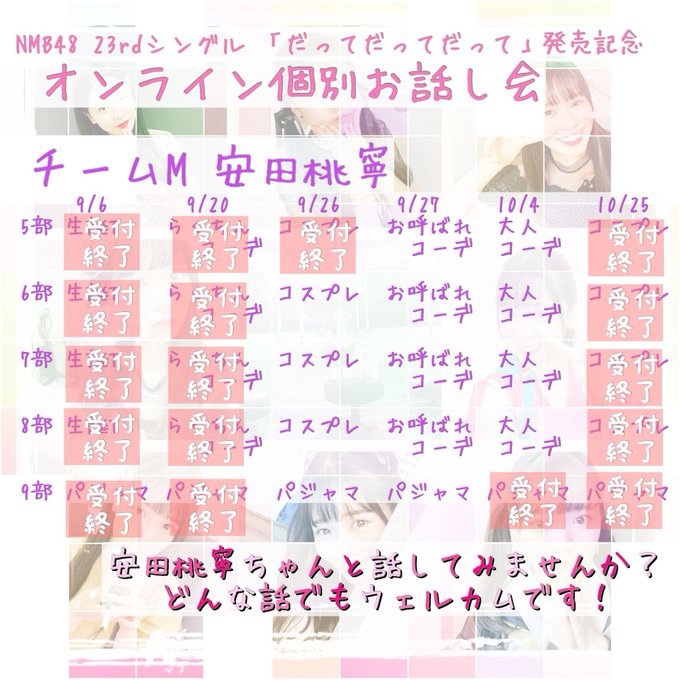 NMB48 23rdシングル 「だってだってだって」発売記念
オンライン個別お話し会
チームM 安田桃寧
9/6 9/20 9/26 9/27 10/4 10/25
5部 受付 受付 受付 お呼ばれ 大人 受付
終了 終了 終了 コーデ コーデ 終了
6部 受付 受付 コスプレ お呼ばれ 大人 受付
終了 終了 コーデ コーデ 終了
7部 受付 受付 コスプレ お呼ばれ 大人 受付
終了 終了 コーデ コーデ 終了
8部 受付 受付 コスプレ お呼ばれ 大人 受付
終了 終了 コーデ コーデ 終了
9部 受付 受付 パジャマ パジャマ 受付 受付
終了 終了 終了 終了
安田桃寧ちゃんと話してみませんか？
どんな話でもウェルカムです！